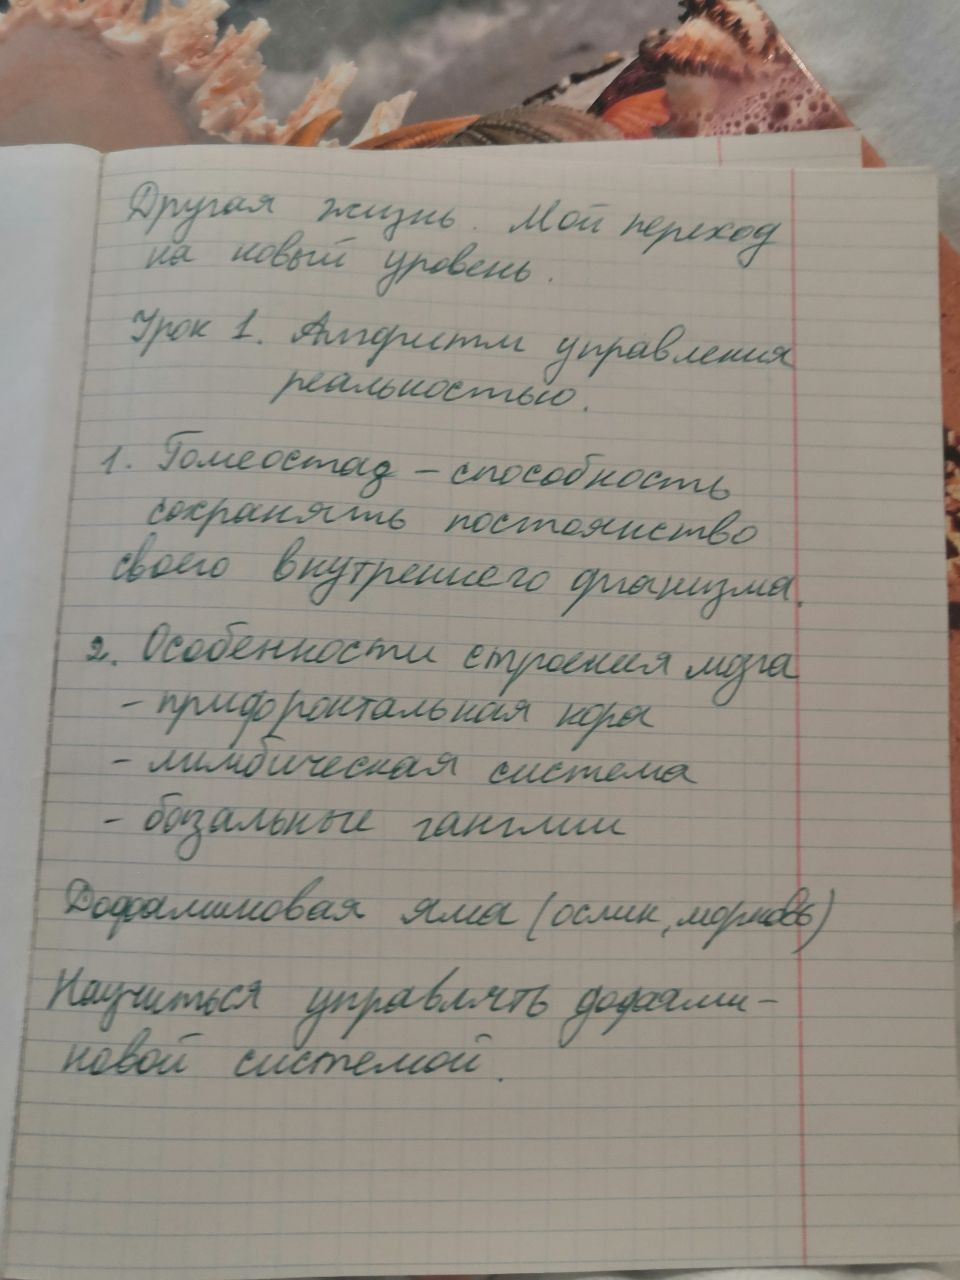 Другая жизнь. Мой переход
на новый уровень.
Урок 1. Алгоритм управления
реальностью.
1. Гомеостаз – способность
сохранять постоянство
своего внутреннего организма.
2. Особенности строения мозга
- прифронтальная кора
- лимбическая система
- базальные ганглии
Дофаминовая яма (ослик, морковь)
Научиться управлять дофами-
новой системой.